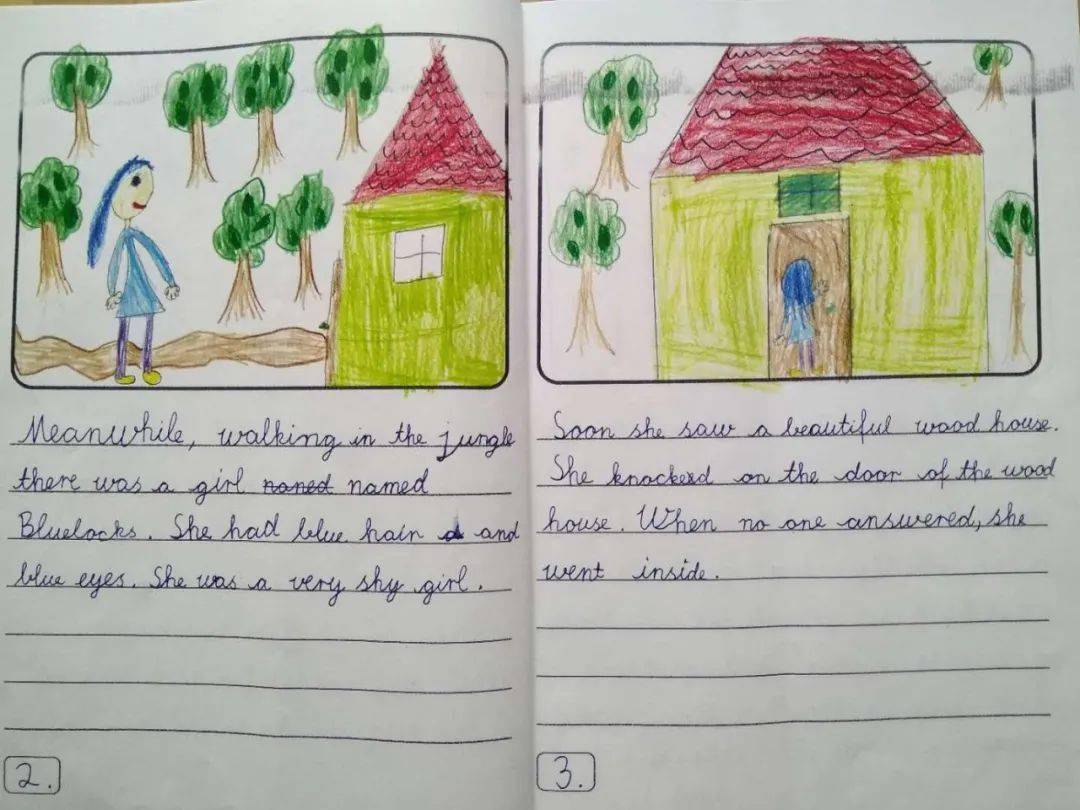 Meanwhile, walking in the jungle
there was a girl naned named
Bluelocks. She had blue hair and
blue eyes. She was a very shy girl.
2.
Soon she saw a beautiful wood house.
She knocked on the door of the wood
house. When no one answered, she
went inside.
3.